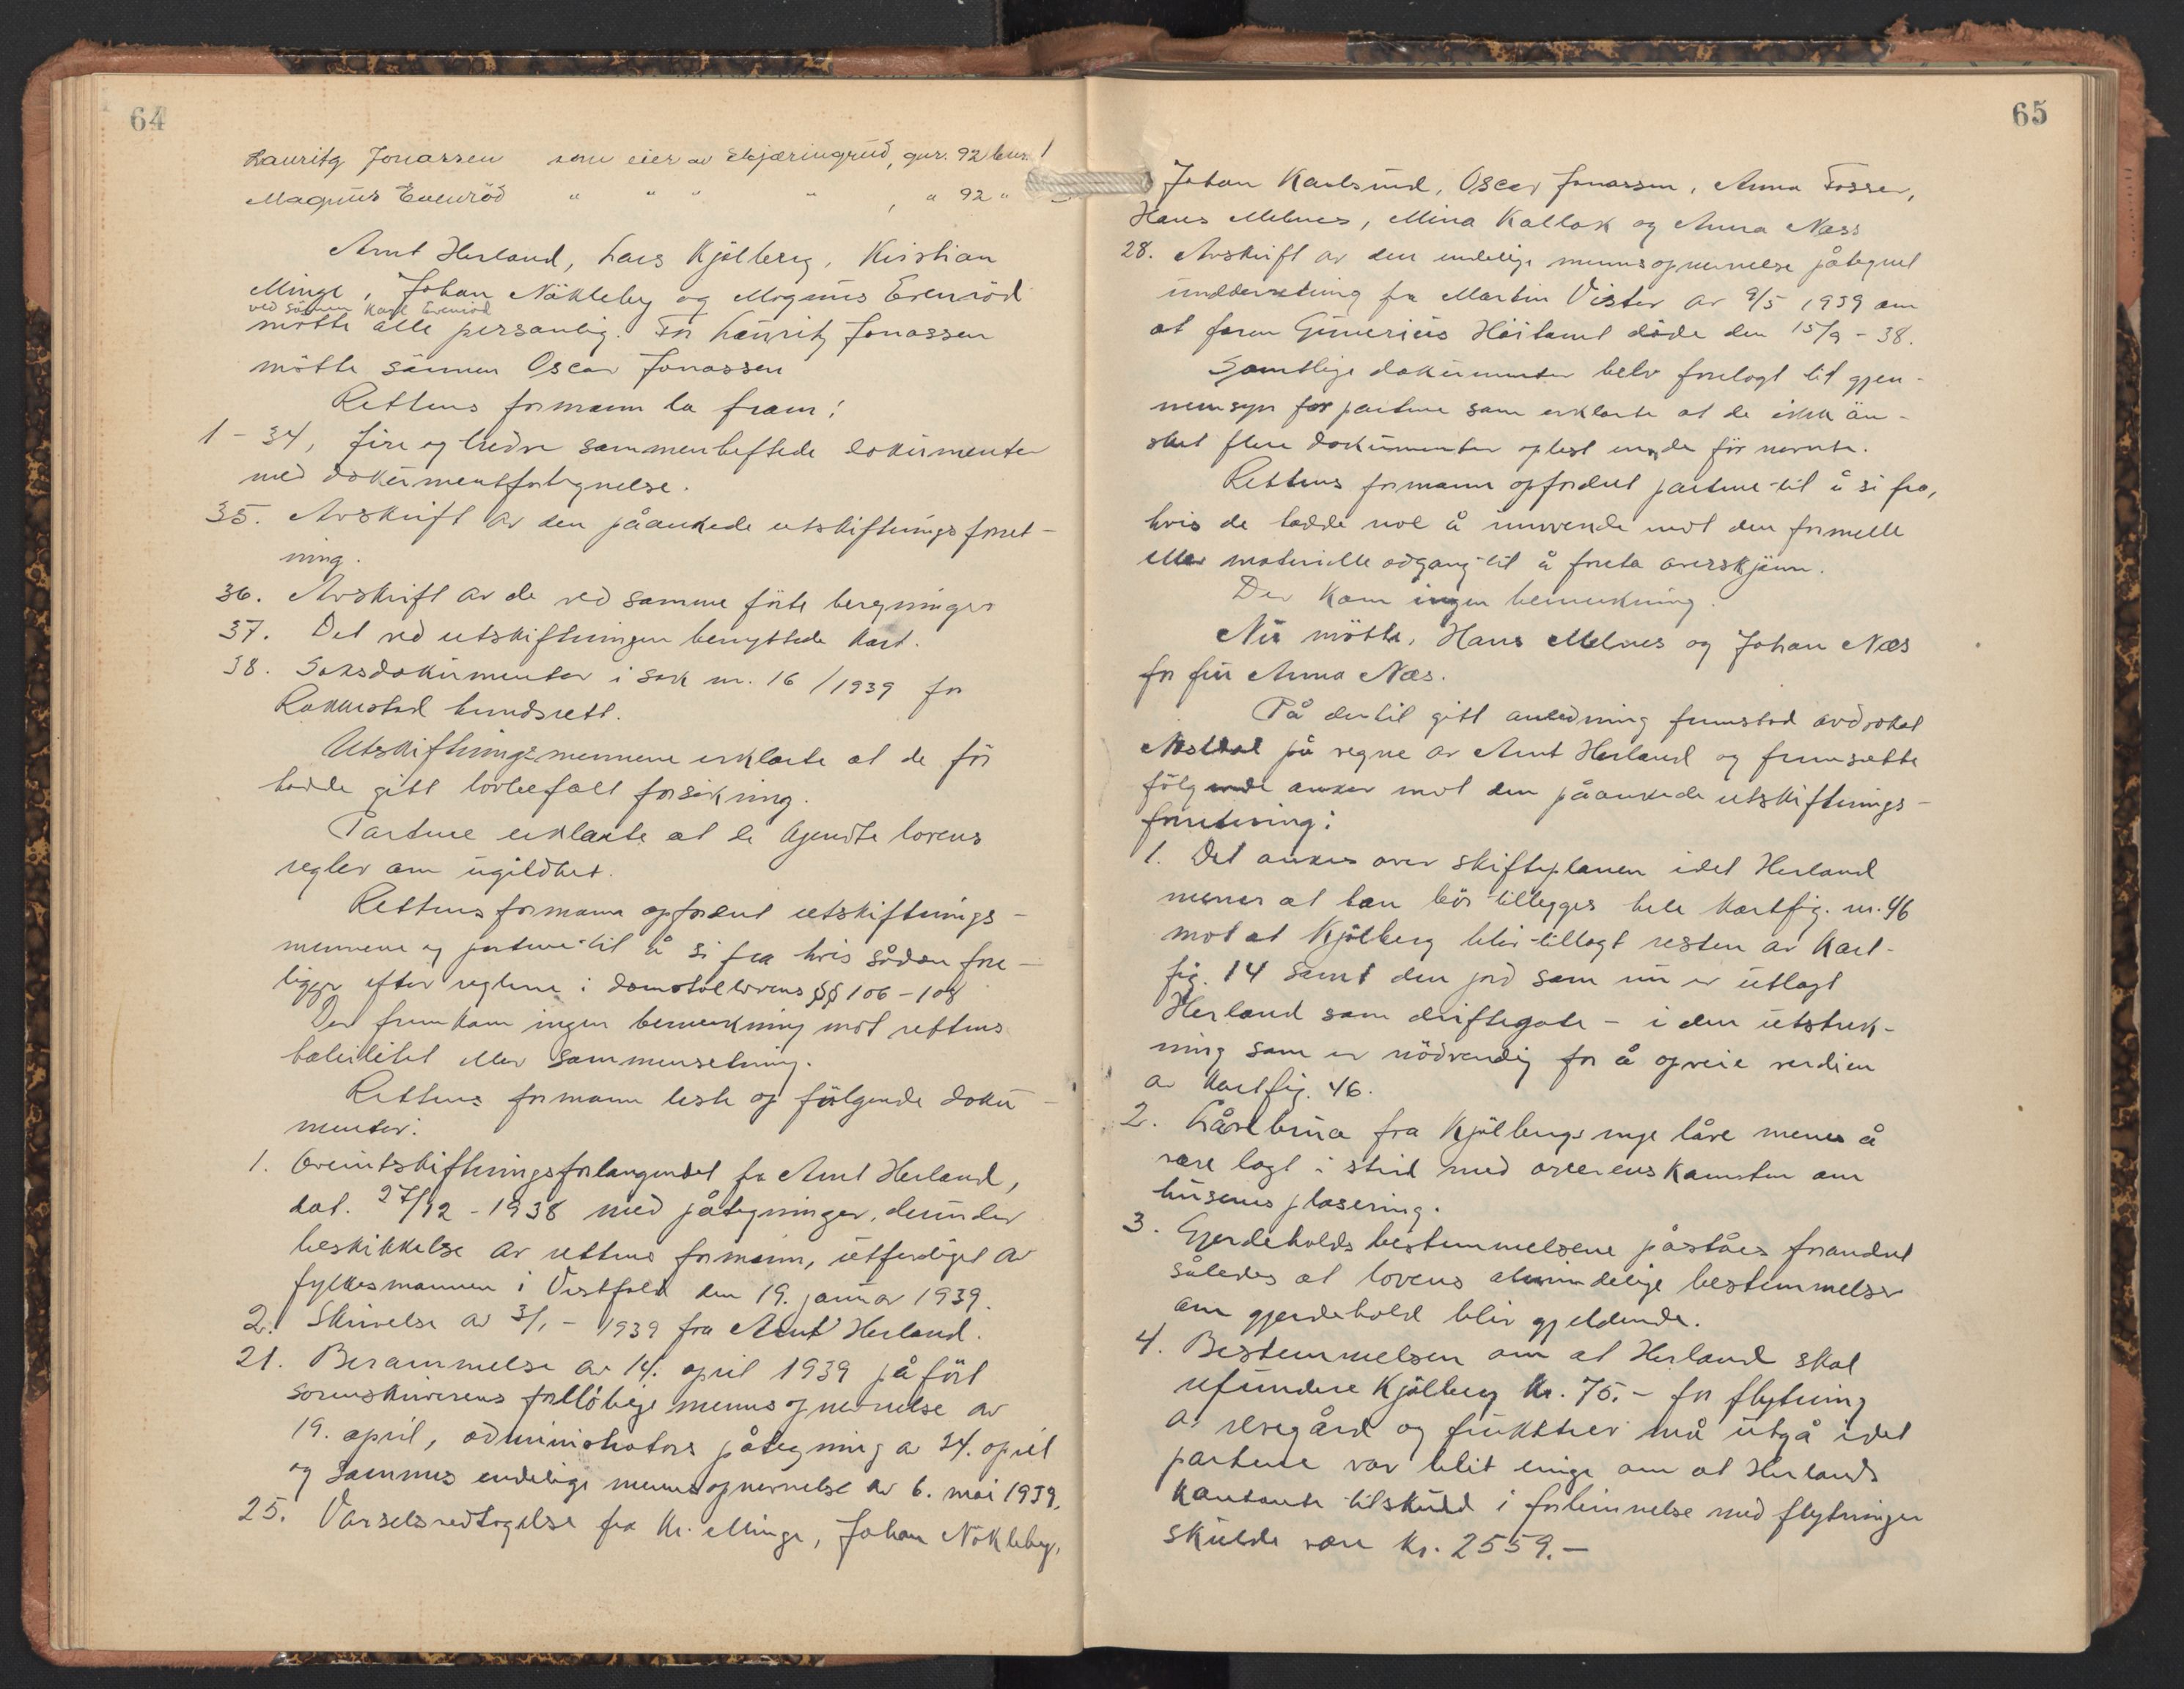 64
Lauritz Jonassen som eier av Skjæringrud, gnr. 92 bnr. 1
Magnus Evenröd " " " " , " 92 "
Arnt Herland, Lars Kjölberg, Kristian
Minge, Johan Nökleby og Magnus Evenröd
ved sönnen Karl Evenröd
mötte alle personlig. For Lauritz Jonassen
mötte sönnen Oscar Jonassen
Rettens formann la fram:
1 - 34, fire og tredve sammenheftede dokumenter
med dokumentfortegnelse.
35. Avskrift av den påankede utskiftningsforret-
ning.
36. Avskrift av de ved samme förte beregninger
37. Det ved utskiftningen benyttede kart.
38. Saksdokumenter i sak nr. 16 / 1939 for
Rakkestad herredsrett.
Utskiftningsmennene erklærte at de för
hadde gitt lovbefalt forsikring.
Partene erklærte at de kjendte lovens
regler om ugildhet.
Rettens formann opfordret utskiftnings-
mennene og partene til å si fra hvis sådan fore-
ligger efter reglene i domstollovens §§ 106 - 108
Der fremkom ingen bemerkning mot rettens
habilitet eller sammensetning.
Rettens formann leste op fölgende doku-
menter:
1. Overutskiftningsforlangendet fra Arnt Herland,
dat. 27/12 - 1938 med påtegninger, derunder
beskikkelse av rettens formann, utferdiget av
fylkesmannen i Vestfold den 19. januar 1939.
2. Skrivelse av 3/1 - 1939 fra Arnt Herland.
21. Berammelse av 14. april 1939 påfört
sorenskriverens forelöbige mennsopnevnelse av
19. april, administrators påtegning av 24. april
og sammes endelige mennsopnevnelse av 6. mai 1939.
25. Varselsvedtagelse fra Kr. Minge, Johan Nökleby,
65
Johan Karlsrud, Oscar Jonassen, Anna Fosser,
Hans Melnes, Mina Kallak og Anna Næss
28. Avskrift av den endelige mennsopnevnelse påtegnet
underretning fra Martin Vister av 9/5 1939 om
at faren Gunerius Höitomt döde den 15/9 - 38.
Samtlige dokumenter belv forelagt til gjen-
nemsyn for partene som erklærte at de ikke ön-
sket flere dokumenter oplest enn de för nevnte.
Rettens formann opfordret partene til å si fra,
hvis de hadde noe å innvende mot den formelle
eller materielle adgang til å foreta overskjönn.
Der kom ingen bemerkning.
Nu mötte, Hans Melnes og Johan Næs
for fru Anna Næs.
På dertil gitt anledning fremstod advokat
på vegne av Arnt Herland og fremsatte
fölgende anker mot den påankede utskiftnings-
forretning:
1. Det ankes over skifteplanen idet Herland
mener at han bör tillegges hele kartfig. nr. 46
mot at Kjölberg blir tillagt resten av kart-
fig. 14 samt den jord som nu er utlagt
Herland som driftegate - i den utstrek-
ning som er nödvendig for å opveie verdien
av kartfig. 46.
2. Låvebrua fra Kjölbergs nye låve menes å
være lagt i strid med overenskomsten om
husenes plasering.
3. Gjerdeholdsbestemmelsene påståes forandret
således at lovens almindelige bestemmelser
om gjerdehold blir gjeldende.
4. Bestemmelsen om at Herland skal
refundere Kjölberg kr. 75.- for flytning
av revegård og frukttrær må utgå idet
partene var blit enige om at Herlands
kontante tilskudd i forbinnelse med flytninger
skulde være kr. 2559.-